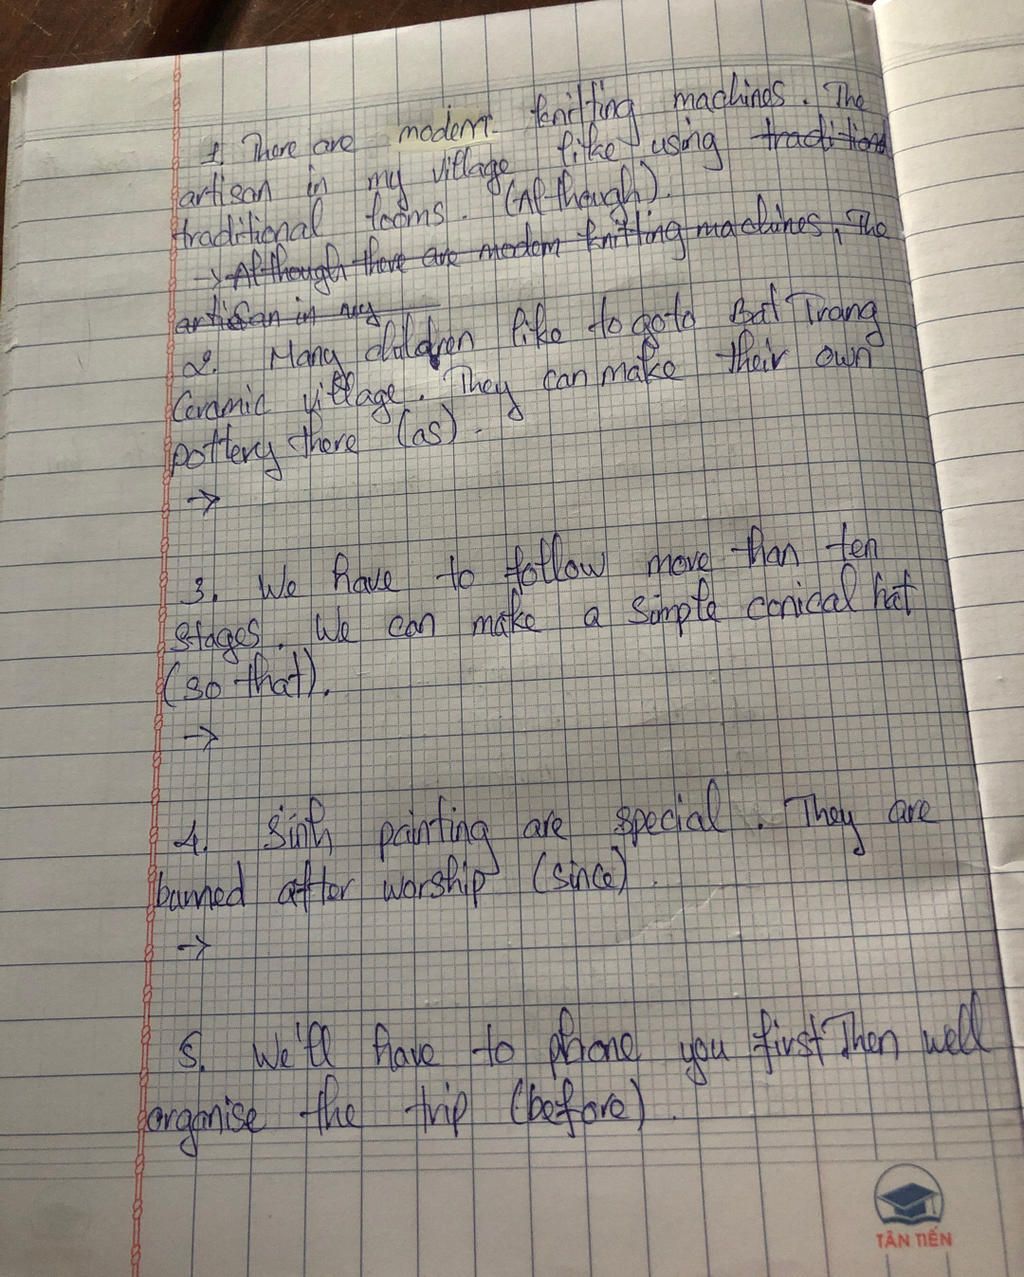 1. There are modern knitting machines. The
artisan in my village like using tradition
traditional looms. (Although).
→ Although there are modern knitting machines, The
artisan in my
2. Many children like to go to Bat Trang
Ceramic village. They can make their own
pottery there (as).
→
3. We have to follow move than ten
stages. We can make a simple conical hat
(so that).
→
4. Sinh painting are special. They are
burned after worship (since).
→
5. We'll have to phone you first Then well
organise the trip (before).
TÂN TIẾN